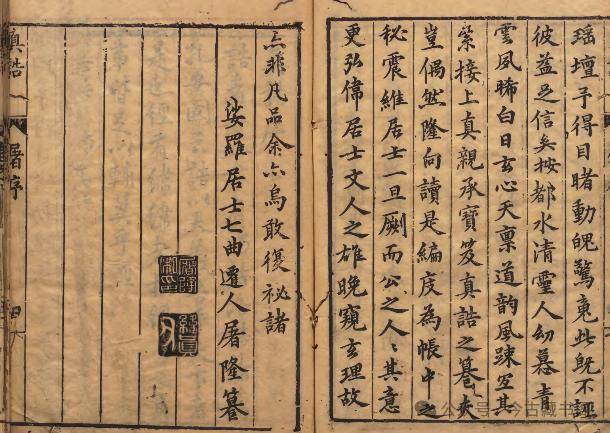 瑶壇予得目睹動魄驚䰟此既不誣
彼益足信矣按都水清靈人幼慕青
雲夙晞白日玄心天稟道韵風踈至其
縈接上真親承寶笈真誥之纂夫
豈偶然隆向讀是編庋為帳中之
秘震維居士一旦劂而公之人〻其意
更弘偉居士文人之雄晚窺玄理故
亦非凡品余亦烏敢復祕諸
娑羅居士七曲遷人屠隆纂
真誥 屠序 四
公众号·今古藏书